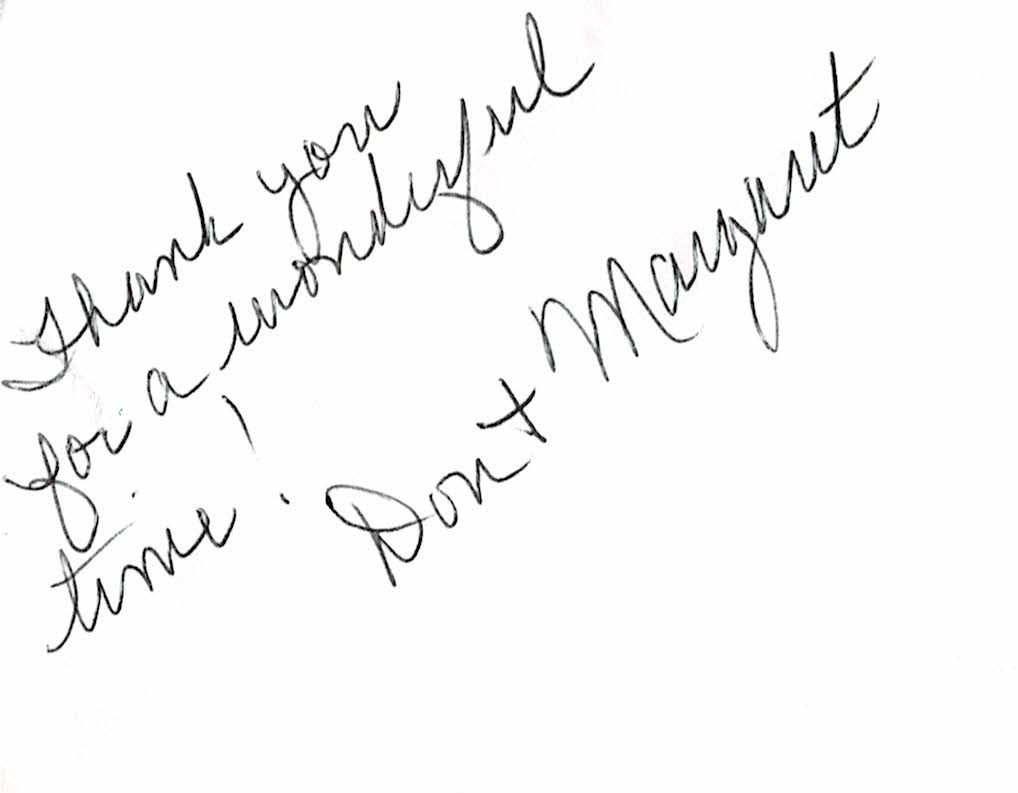 Thank you
for a wonderful
time!
Don + Margaret